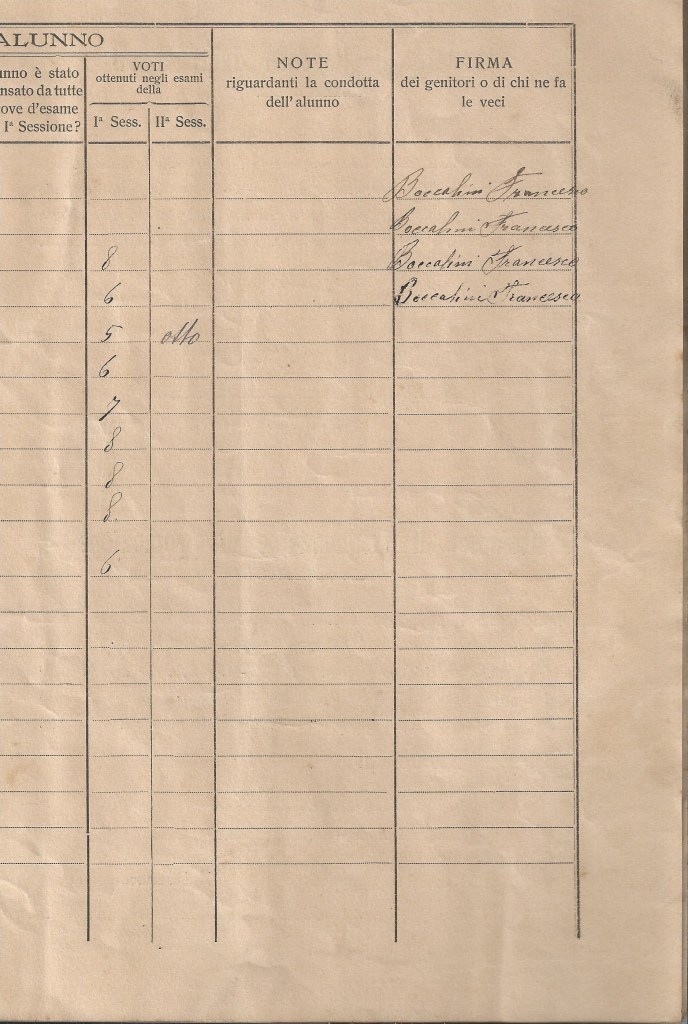 ALUNNO
nno è stato
nsato da tutte
ove d'esame
Iª Sessione?
VOTI
ottenuti negli esami
della
Iª Sess. IIª Sess.
NOTE
riguardanti la condotta
dell'alunno
FIRMA
dei genitori o di chi ne fa
le veci
Boccalini Francesco
Boccalini Francesco
8 Boccalini Francesco
6 Boccalini Francesco
5 otto
6
7
8
8
8.
6